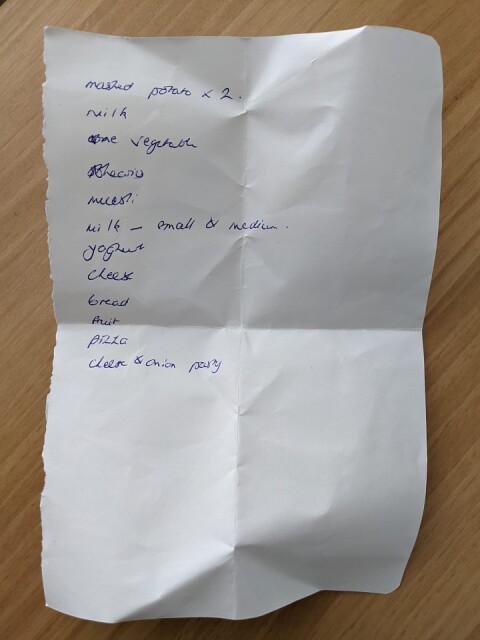 mashed potato x 2.
milk
vegetable
muesli
milk – small & medium.
yoghurt
cheese
bread
fruit
pizza
cheese & onion pasty